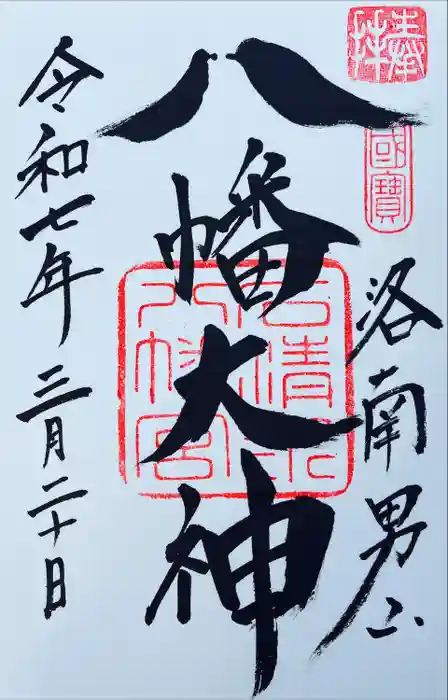 奉拝
國寶
洛南男山
八幡大神
石清水八幡宮
令和七年三月二十日